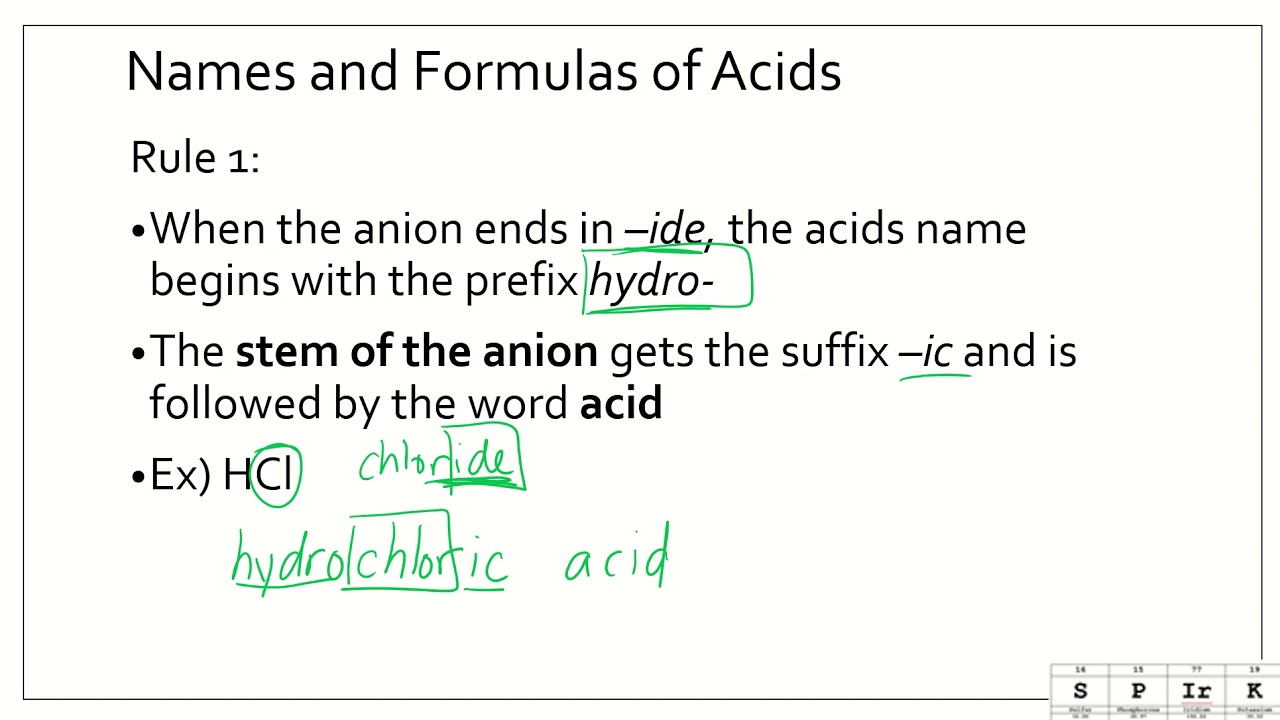 Names and Formulas of Acids
Rule 1:
•When the anion ends in –ide, the acids name
begins with the prefix hydro-
•The stem of the anion gets the suffix –ic and is
followed by the word acid
•Ex) HCl chloride
hydrochloric acid
16 15 77 19
S P Ir K
Sulfur Phosphorous Iridium Potassium